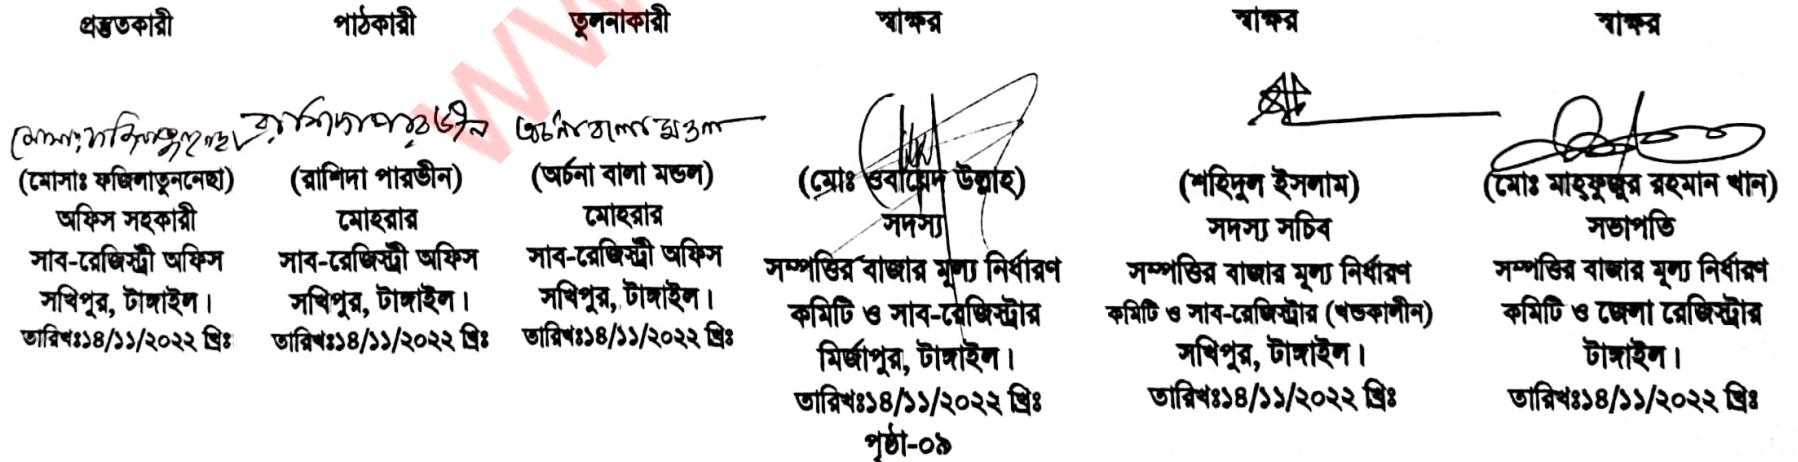 প্রস্তুতকারী
মোসাঃ ফজিলাতুননেছা
(মোসাঃ ফজিলাতুননেছা)
অফিস সহকারী
সাব-রেজিস্ট্রী অফিস
সখিপুর, টাঙ্গাইল।
তারিখঃ১৪/১১/২০২২ খ্রিঃ
পাঠকারী
রাশিদা পারভীন
(রাশিদা পারভীন)
মোহরার
সাব-রেজিস্ট্রী অফিস
সখিপুর, টাঙ্গাইল।
তারিখঃ১৪/১১/২০২২ খ্রিঃ
তুলনাকারী
অর্চনা বালা মন্ডল
(অর্চনা বালা মন্ডল)
মোহরার
সাব-রেজিস্ট্রী অফিস
সখিপুর, টাঙ্গাইল।
তারিখঃ১৪/১১/২০২২ খ্রিঃ
স্বাক্ষর
(মোঃ ওবায়েদ উল্লাহ)
সদস্য
সম্পত্তির বাজার মূল্য নির্ধারণ
কমিটি ও সাব-রেজিস্ট্রার
মির্জাপুর, টাঙ্গাইল।
তারিখঃ১৪/১১/২০২২ খ্রিঃ
স্বাক্ষর
(শহিদুল ইসলাম)
সদস্য সচিব
সম্পত্তির বাজার মূল্য নির্ধারণ
কমিটি ও সাব-রেজিস্ট্রার (খন্ডকালীন)
সখিপুর, টাঙ্গাইল।
তারিখঃ১৪/১১/২০২২ খ্রিঃ
স্বাক্ষর
(মোঃ মাহ্ফুজুর রহমান খান)
সভাপতি
সম্পত্তির বাজার মূল্য নির্ধারণ
কমিটি ও জেলা রেজিস্ট্রার
টাঙ্গাইল।
তারিখঃ১৪/১১/২০২২ খ্রিঃ
পৃষ্ঠা-০৯